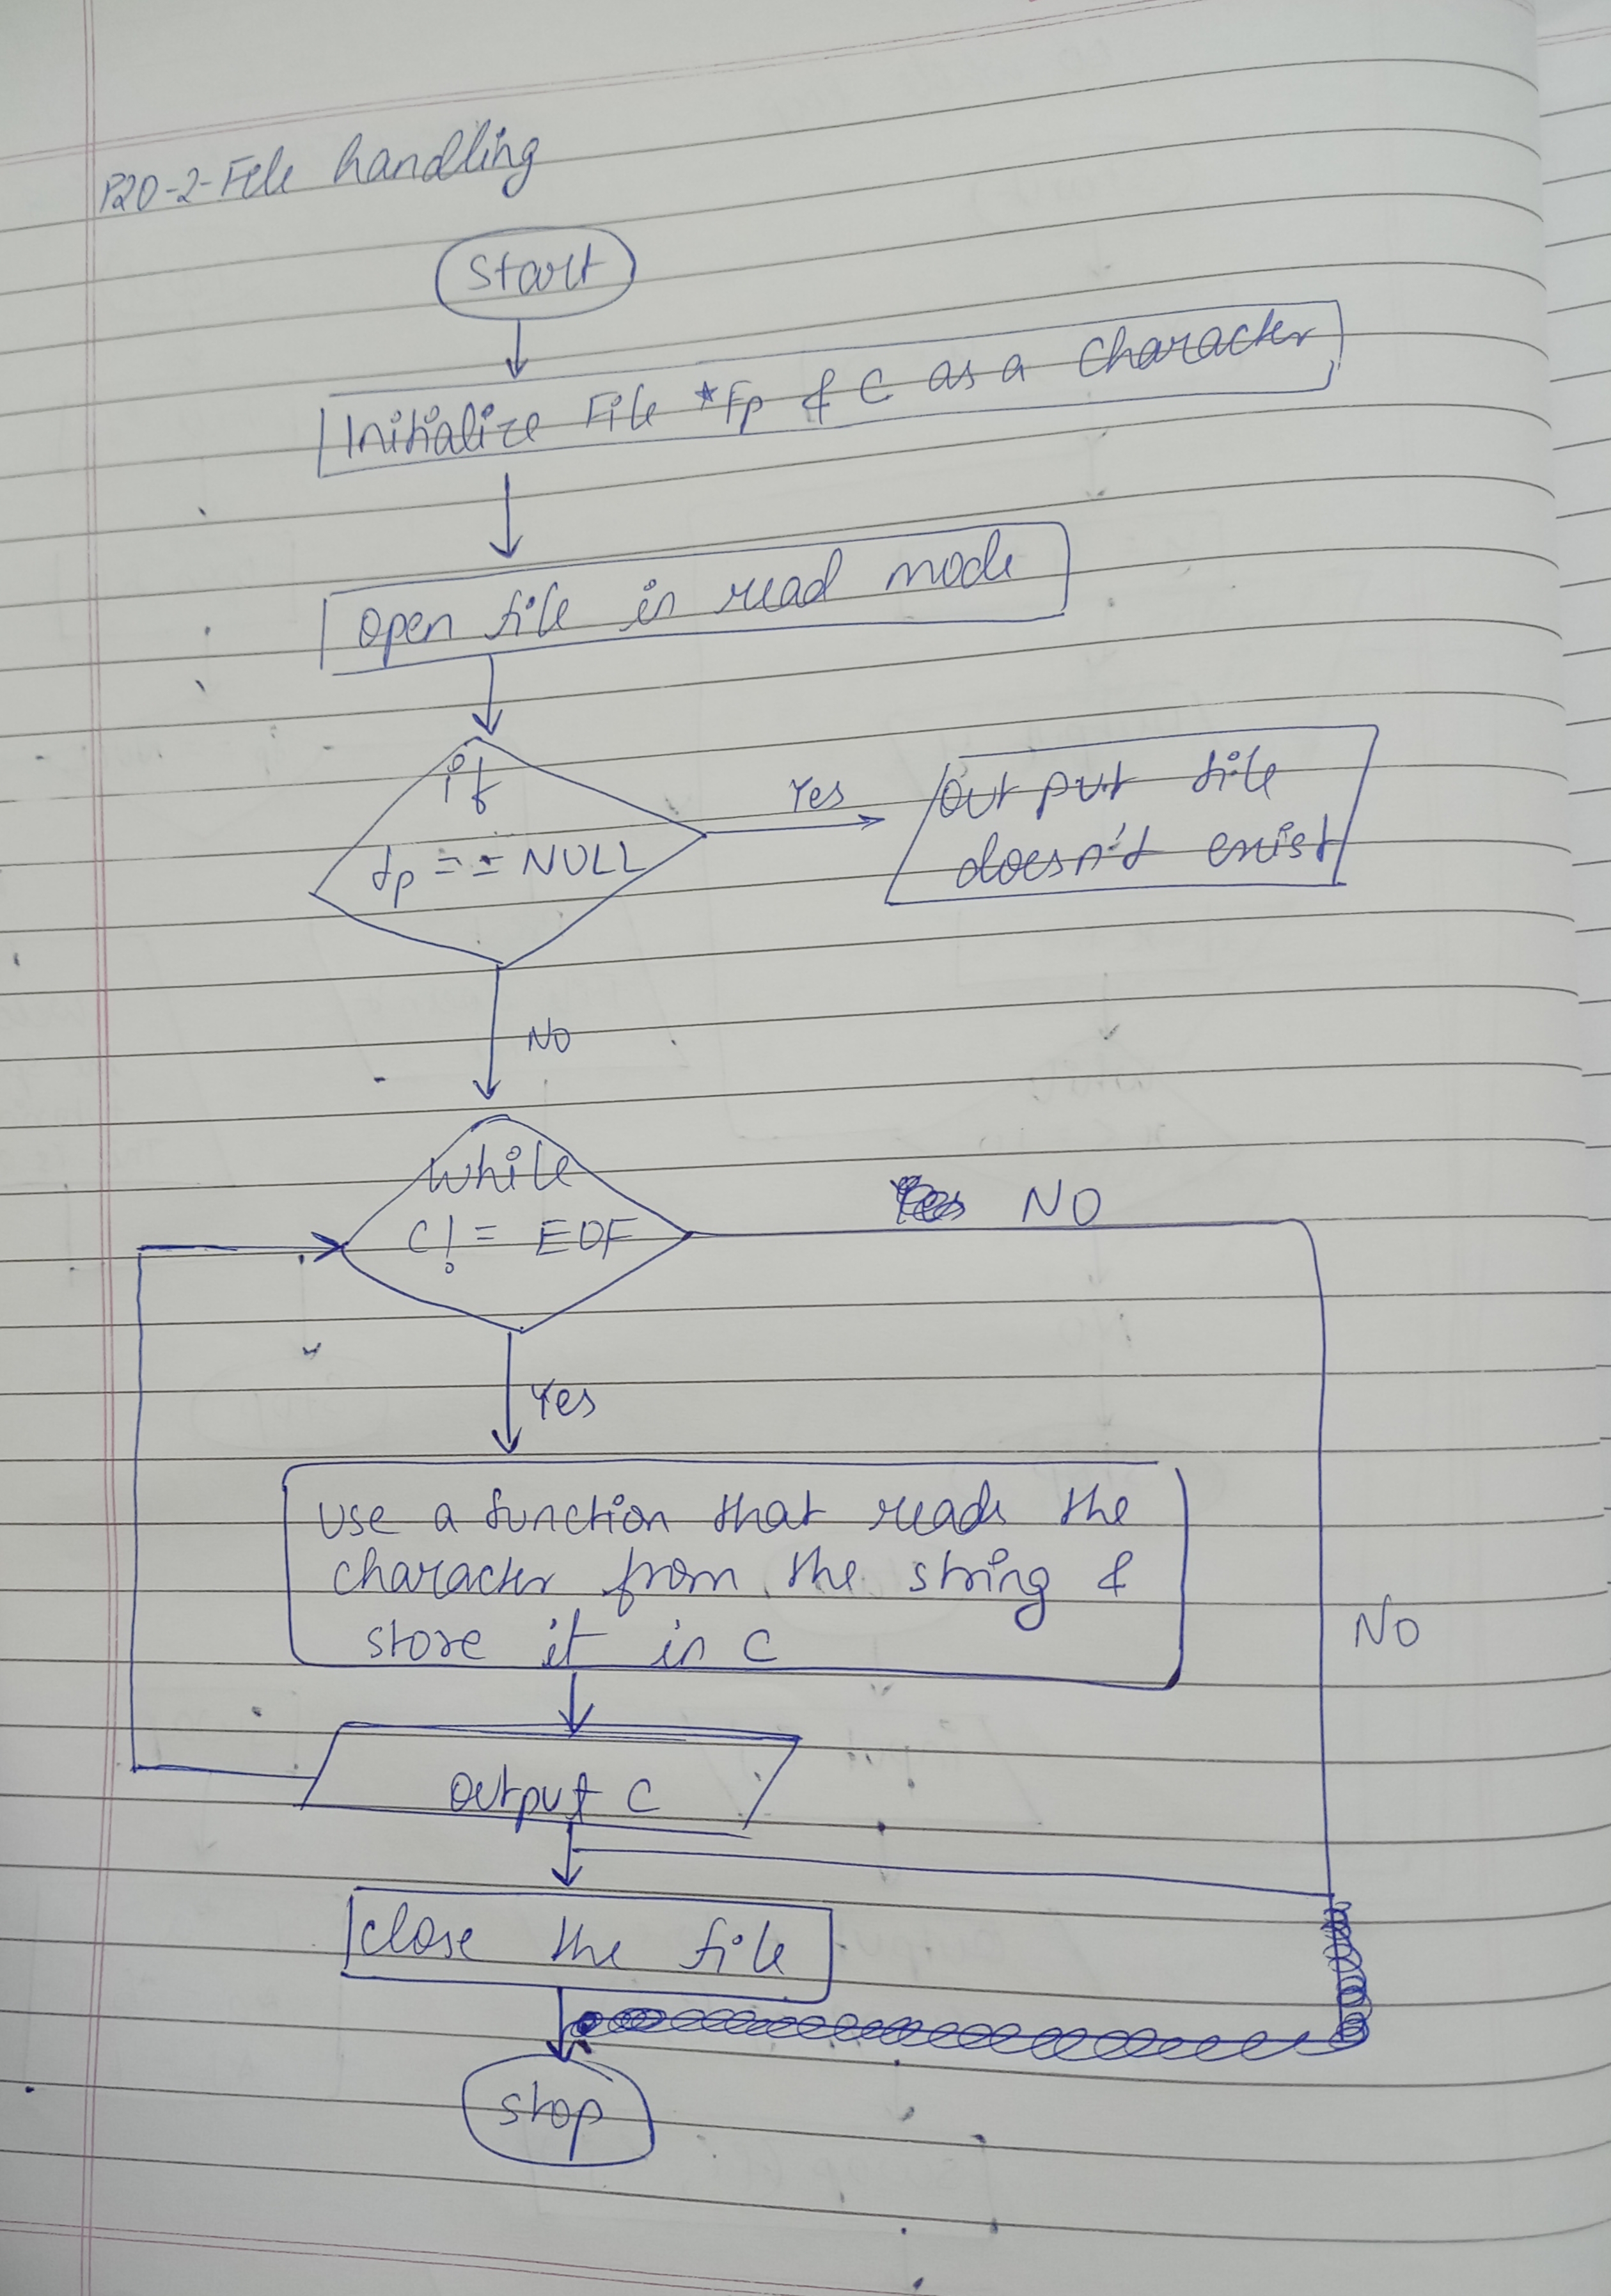 P20-2-File handling
Start
Initialize File *Fp & C as a character
Open file in read mode
if
fp == NULL
Yes
output file
doesn't exist
NO
while
C != EOF
NO
Yes
use a function that reads the
character from the string &
store it in C
NO
output C
close the file
stop